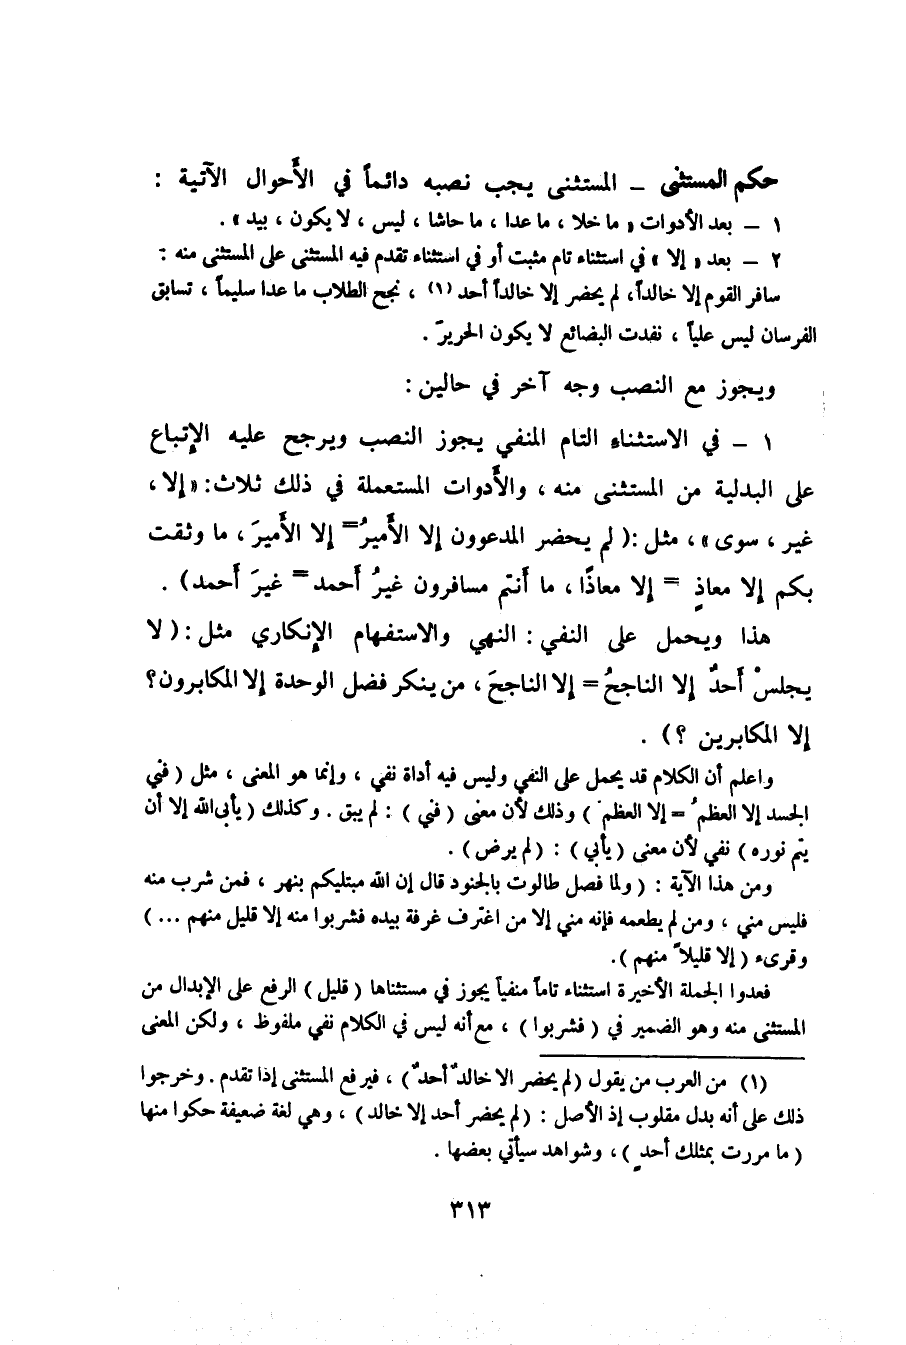 حكم المستثنى ــ المستثنى يجب نصبه دائماً في الأحوال الآتية :
١ ــ بعد الأدوات « ما خلا ، ما عدا ، ما حاشا ، ليس ، لا يكون ، بيد » .
٢ ــ بعد « إلا » في استثناء تام مثبت أو في استثناء تقدم فيه المستثنى على المستثنى منه :
سافر القوم إلا خالداً، لم يحضر إلا خالداً أحد (١) ، نجح الطلاب ما عدا سليماً ، تسابق
الفرسان ليس علياً ، نفدت البضائع لا يكون الحريرَ .
ويجوز مع النصب وجه آخر في حالين :
١ ــ في الاستثناء التام المنفي يجوز النصب ويرجح عليه الإتباع
على البدلية من المستثنى منه ، والأدوات المستعملة في ذلك ثلاث: «إلا ،
غير ، سوى» ، مثل :( لم يحضر المدعوون إلا الأميرُ = إلا الأميرَ ، ما وثقت
بكم إلا معاذٍ = إلا معاذًا ، ما أنتم مسافرون غيرُ أحمد = غيرَ أحمد) .
هذا ويحمل على النفي : النهي والاستفهام الإنكاري مثل : ( لا
يجلسْ أحدٌ إلا الناجحُ = إلا الناجحَ ، من ينكر فضل الوحدة إلا المكابرون؟
إلا المكابرين ؟) .
واعلم أن الكلام قد يحمل على النفي وليس فيه أداة نفي ، وإنما هو المعنى ، مثل ( فني
الجسد إلا العظمُ = إلا العظمَ ) وذلك لأن معنى ( فني ) : لم يبق . وكذلك ( يأبى الله إلا أن
يتم نوره ) نفي لأن معنى ( يأبى ) : ( لم يرض ) .
ومن هذا الآية : ( ولما فصل طالوت بالجنود قال إن الله مبتليكم بنهر ، فمن شرب منه
فليس مني ، ومن لم يطعمه فإنه مني إلا من اغترف غرفة بيده فشربوا منه إلا قليل منهم ... )
وقرىء ( إلا قليلاً منهم ).
فعدوا الجملة الأخيرة استثناء تاماً منفياً يجوز في مستثناها ( قليل ) الرفع على الإبدال من
المستثنى منه وهو الضمير في ( فشربوا ) ، مع أنه ليس في الكلام نفي ملفوظ ، ولكن المعنى
(١) من العرب من يقول ( لم يحضر الا خالدٌ أحدٌ ) ، فيرفع المستثنى إذا تقدم . وخرجوا
ذلك على أنه بدل مقلوب إذ الأصل : ( لم يحضر أحد إلا خالد ) ، وهي لغة ضعيفة حكوا منها
( ما مررت بمثلك أحدٍ ) ، وشواهد سيأتي بعضها .
٣١٣